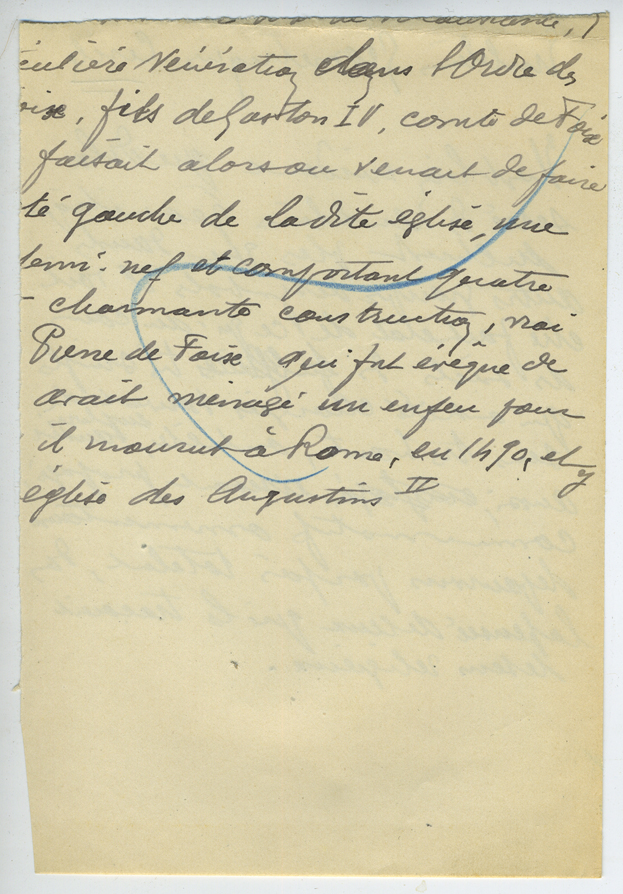 culière vénération dans l'Ordre des
oix, fils de Gaston IV, comte de Foix
faisait alors ou venait de faire
té gauche de ladite église, une
demi-nef et comportant quatre
- charmante construction, vrai
Pierre de Foix qui fut évêque de
avait ménagé un enfeu pour
il mourut à Rome, en 1490, et y
église des Augustins IV